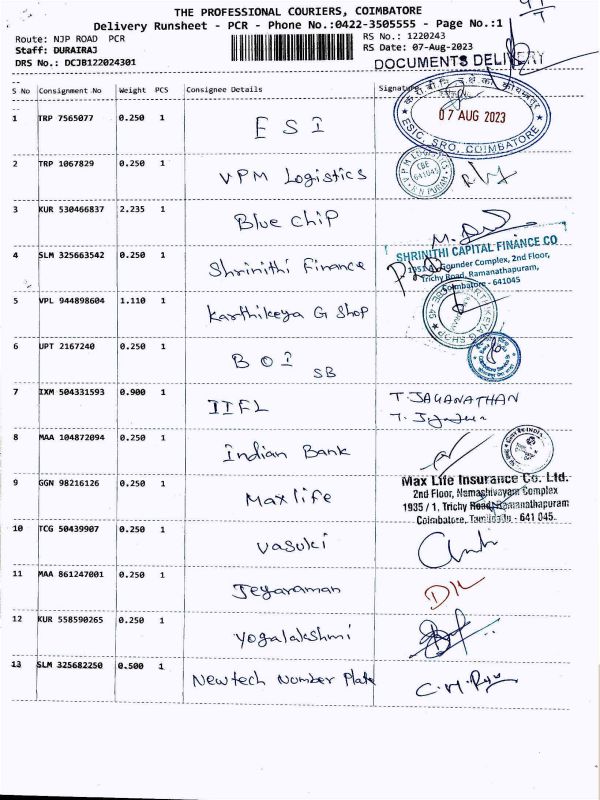 THE PROFESSIONAL COURIERS, COIMBATORE
Delivery Runsheet - PCR - Phone No.:0422-3505555 - Page No.:1
Route: NJP ROAD PCR
RS No.: 1220243
Staff: DURAIRAJ
RS Date: 07-Aug-2023
DRS No.: DCJB122024301
DOCUMENTS DELIVERY
S No Consignment No Weight PCS Consignee Details Signature
07 AUG 2023
ESIC, SRO, COIMBATORE
1 TRP 7565077 0.250 1 ESI
2 TRP 1067829 0.250 1 VPM Logistics
CBE
641045
3 KUR 530466837 2.235 1 Blue chip
4 SLM 325663542 0.250 1 Shrinithi Finance
SHRINITHI CAPITAL FINANCE CO
Gounder Complex, 2nd Floor,
Trichy Road, Ramanathapuram,
Coimbatore - 641045
5 VPL 944898604 1.110 1 Karthikeya G Shop
6 UPT 2167240 0.250 1 BOI SB
7 IXM 504331593 0.900 1 IIFL T. JAGANATHAN
8 MAA 104872094 0.250 1 Indian Bank
9 GGN 98216126 0.250 1 Maxlife
Max Life Insurance Co. Ltd.
2nd Floor, Namashivayam Complex
1935 / 1, Trichy Road, Ramanathapuram
Coimbatore, Tamilnadu - 641 045.
10 TCG 50439907 0.250 1 Vasuki
11 MAA 861247001 0.250 1 Jeyaraman
12 KUR 558590265 0.250 1 Yogalakshmi
13 SLM 325682250 0.500 1 Newtech Number Plate